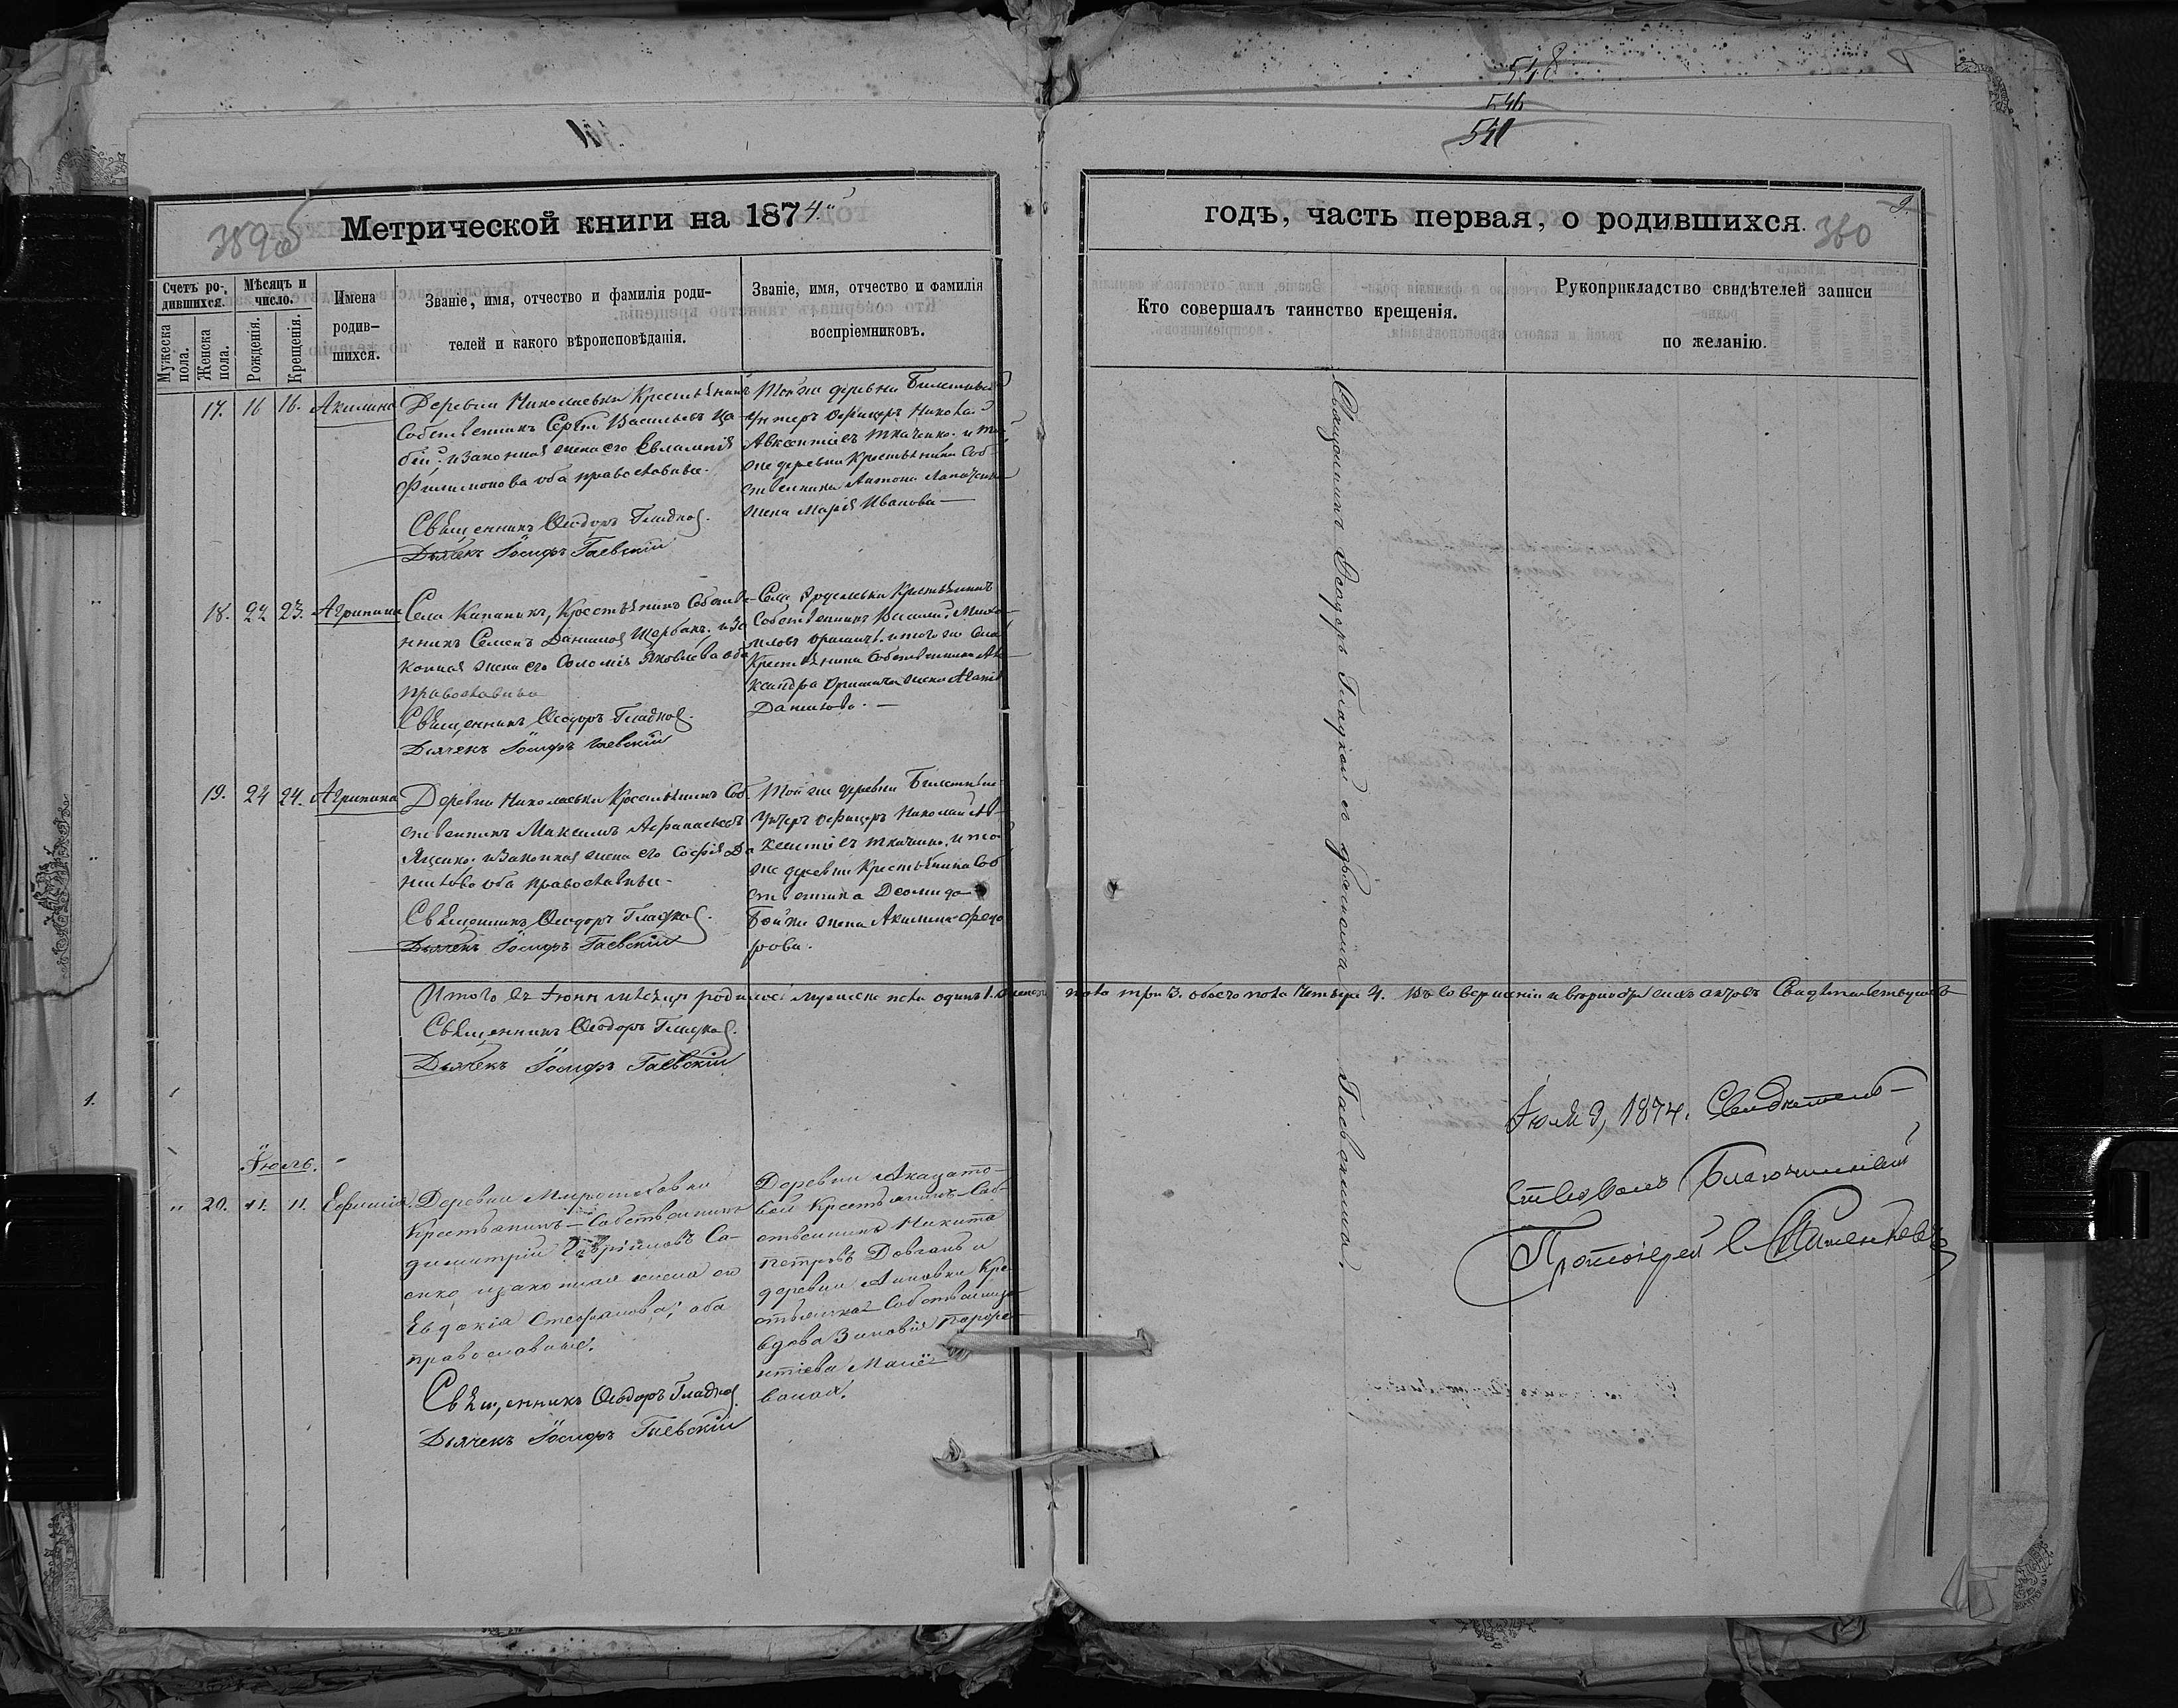 548
546
541
Метрической книги на 1874.
годъ, часть первая, о родившихся.
360
Счетъ ро-
дившихся.
Мужеска пола.
Женска пола.
Мѣсяцъ и
число.
Рожденія.
Крещенія.
Имена
родив-
шихся.
Званіе, имя, отчество и фамилія роди-
телей и какого вѣроисповѣданія.
Званіе, имя, отчество и фамилія
воспріемниковъ.
Кто совершалъ таинство крещенія.
Рукоприкладство свидѣтелей записи
по желанію.
17. 16 16. Акилина
Деревни Николаевки Крестьянинъ
Собственникъ Сергій Васильевъ
и законная жена его Евлампія
Филимонова оба православные.
Священникъ Ѳеодоръ Гладкой.
Дьячекъ Іосифъ Гаевскій
Той же деревни Билетный
Унтеръ Офицеръ Николай
Авксентіевъ Ткаченко. и той
же деревни Крестьянина Соб-
ственника Антона
жена Марія Иванова
18. 22 23. Агрипина
Села Капанихъ, Крестьянинъ Собстве-
нникъ Семенъ Даниловъ Щербакъ. и за
конная жена его Соломія Яковлева оба
православные
Священникъ Ѳеодоръ Гладкой.
Дьячекъ Іосифъ Гаевскій
Села Крестьянинъ
Собственникъ Василій Миха-
иловъ и того же Села
Крестьянина Собственника Але
ксандра жена Агапія
Данилова.
19. 24 24. Агрипина
Деревни Николаевки Крестьянинъ Соб-
ственникъ Максимъ Афанасьевъ
Яценко. и законная жена его Софія Да
нилова оба православные.
Священникъ Ѳеодоръ Гладкой.
Дьячекъ Іосифъ Гаевскій
Той же деревни Билетный
Унтеръ Офицеръ Николай Ав-
ксентіевъ Ткаченко. и той
же деревни Крестьянина Соб
ственника Деомида
Бойка жена Акилина Федо
рова.
Итого въ Іюнѣ мѣсяцѣ родилось мужеска пола одинъ 1. женска пола три 3. обоего пола четыре 4. Въ совершеніи и вѣрности сихъ актовъ Свидѣтельствуемъ
Священникъ Ѳеодоръ Гладкой.
Дьячекъ Іосифъ Гаевскій
Іюль.
20. 11. 11. Евфимія
Деревни Мирополовки
Крестьянинъ-Собственникъ
Димитрій Гавріиловъ Са-
енко, и законная жена его
Евдокія Стефанова; оба
православные.
Священникъ Ѳеодоръ Гладкой.
Дьячекъ Іосифъ Гаевскій
Деревни
вой Крестьянинъ-Соб-
ственникъ Никита
Петровъ Довгань и
деревни Анновки Кре-
стьянка-Собственница
вдова Зиновія
Священникъ Ѳеодоръ Гладкой съ дьячкомъ Гаевскимъ.
Іюля 9, 1874. Свидѣтель-
ствовалъ Благочинный
Протоіерей